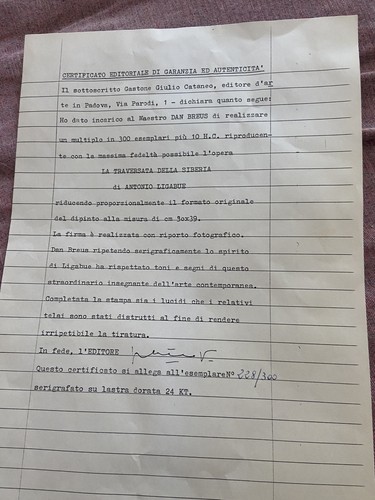 CERTIFICATO EDITORIALE DI GARANZIA ED AUTENTICITA'
Il sottoscritto Gastone Giulio Cataneo, editore d'ar
te in Padova, Via Parodi, 1 - dichiara quanto segue:
Ho dato incarico al Maestro DAN BREUS di realizzare
un multiplo in 300 esemplari più 10 H.C. riproducen-
te con la massima fedeltà possibile l'opera
LA TRAVERSATA DELLA SIBERIA
di ANTONIO LIGABUE
riducendo proporzionalmente il formato originale
del dipinto alla misura di cm 30x39.
La firma è realizzata con riporto fotografico.
Dan Breus ripetendo serigraficamente lo spirito
di Ligabue ha rispettato toni e segni di questo
straordinario insegnante dell'arte contemporanea.
Completata la stampa sia i lucidi che i relativi
telai sono stati distrutti al fine di rendere
irripetibile la tiratura.
In fede, l'EDITORE
Questo certificato si allega all'esemplare N° 228/300
serigrafato su lastra dorata 24 KT.